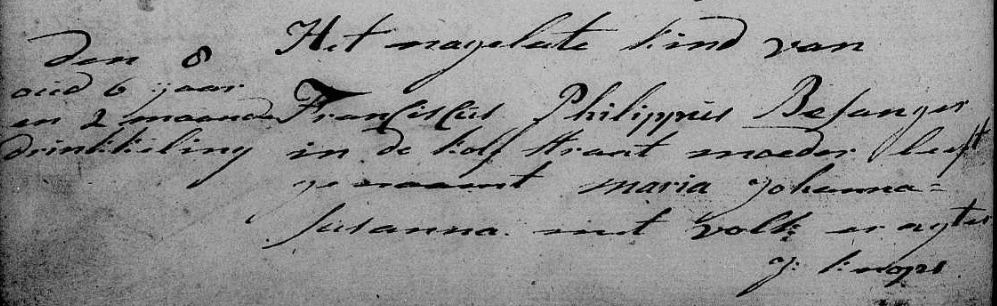 den 8
oud 6 jaar
en 2 maande
drinkkeling
Het nagelate kind van
Franciscus Philippus Besanger
in de kolf straat moeder leeft
genaamt maria Johanna=
Susanna. met volk er agter